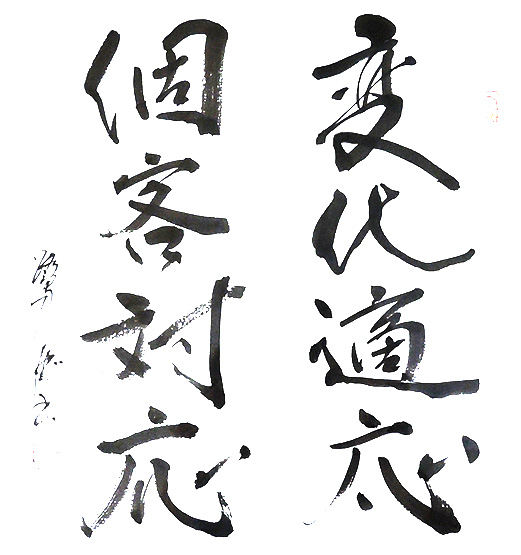 変化適応
個客対応